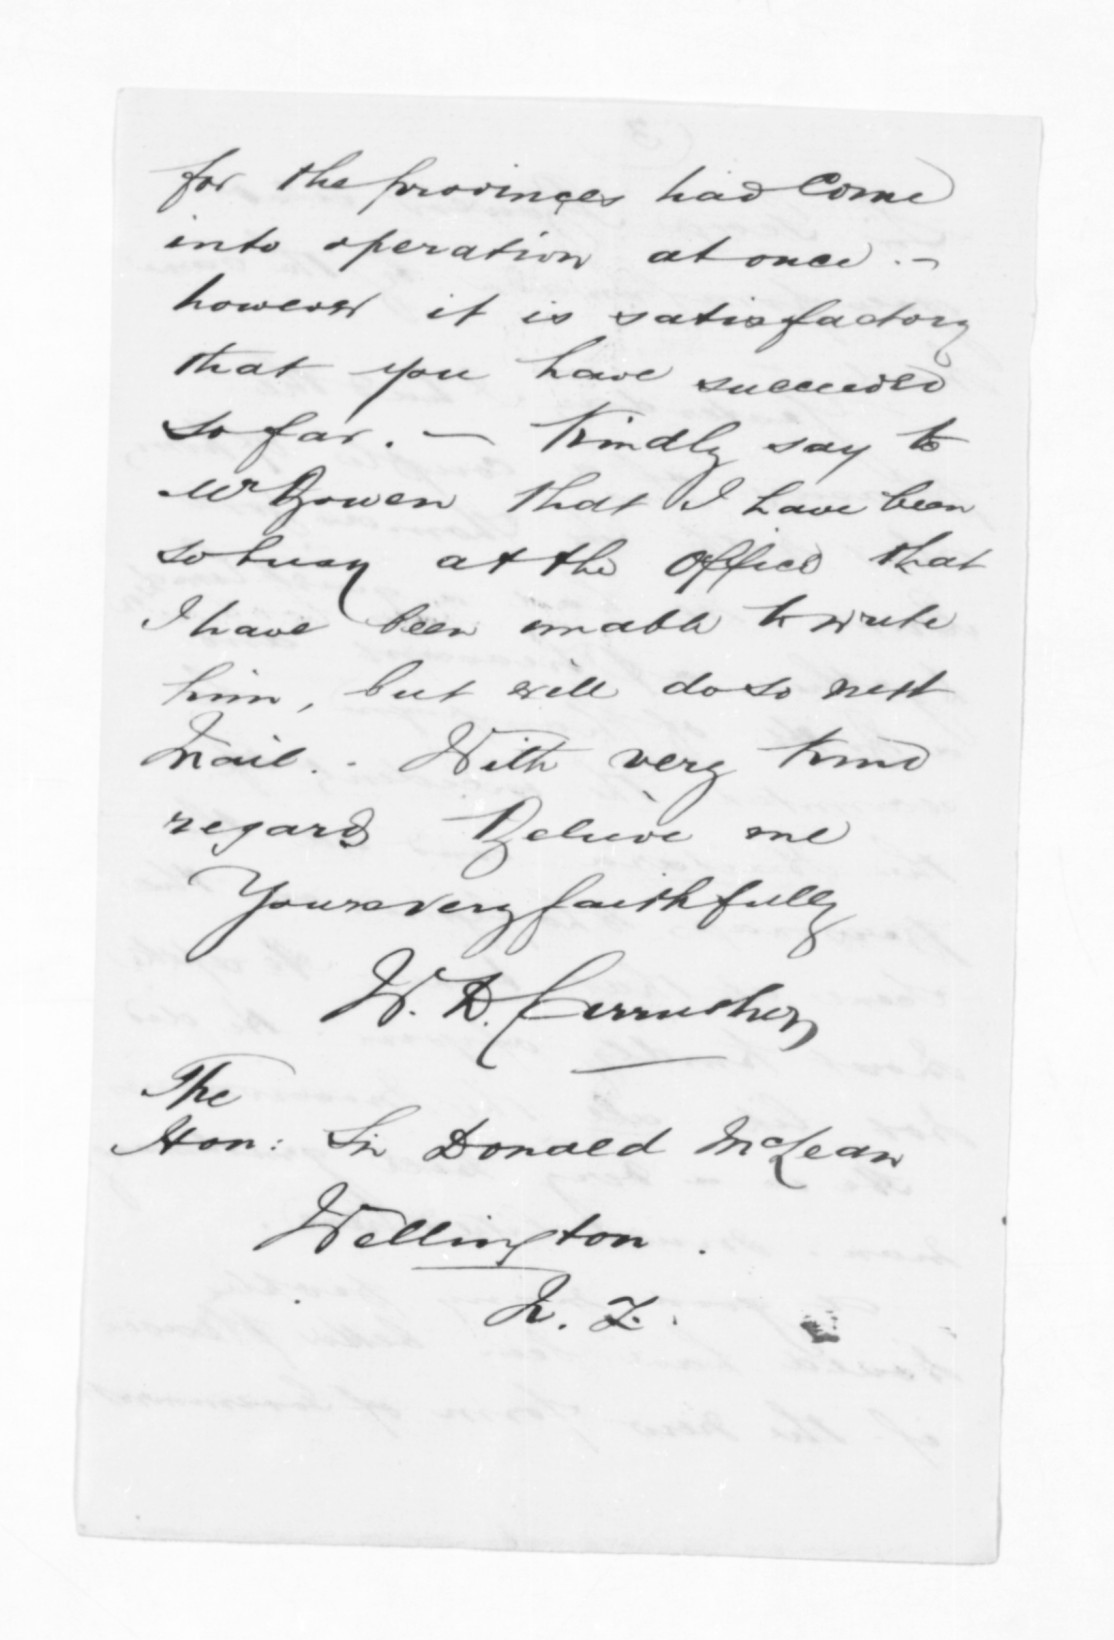 for the provinces had Come
into operation at once. -
however it is satisfactory
that you have succeeded
so far. - Kindly say to
Mr Bowen that I have been
so busy at the Office that
I have been unable to write
him, but will do so next
Mail. - With very kind
regards Believe me
Yours very faithfully
W. D. Carruthers
The
Hon: Sir Donald McLean
Wellington.
N. Z.